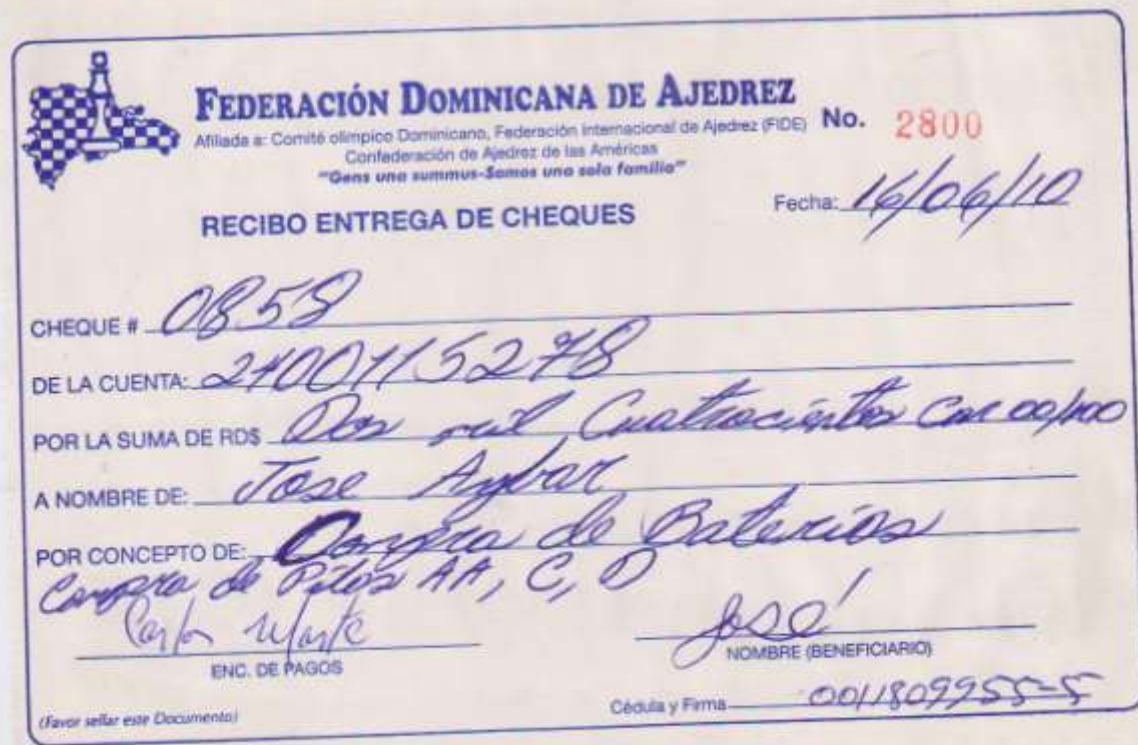 FEDERACIÓN DOMINICANA DE AJEDREZ
Afiliada a: Comité olimpico Dominicano, Federación Internacional de Ajedrez (FIDE)
No. 2800
Confederación de Ajedrez de las Américas
"Gens una summus-Somos una sola familia"
RECIBO ENTREGA DE CHEQUES
Fecha: 16/06/10
CHEQUE # 0858
DE LA CUENTA: 2400115278
POR LA SUMA DE RD$ Dos mil Cuatrocientos Con 00/100
A NOMBRE DE: Jose Aybar
POR CONCEPTO DE: Compra de Baterias
Compra de Pilas AA, C, D
Carlos
ENC. DE PAGOS
José
NOMBRE (BENEFICIARIO)
Cédula y Firma 0011809955-5
(Favor sellar este Documento)